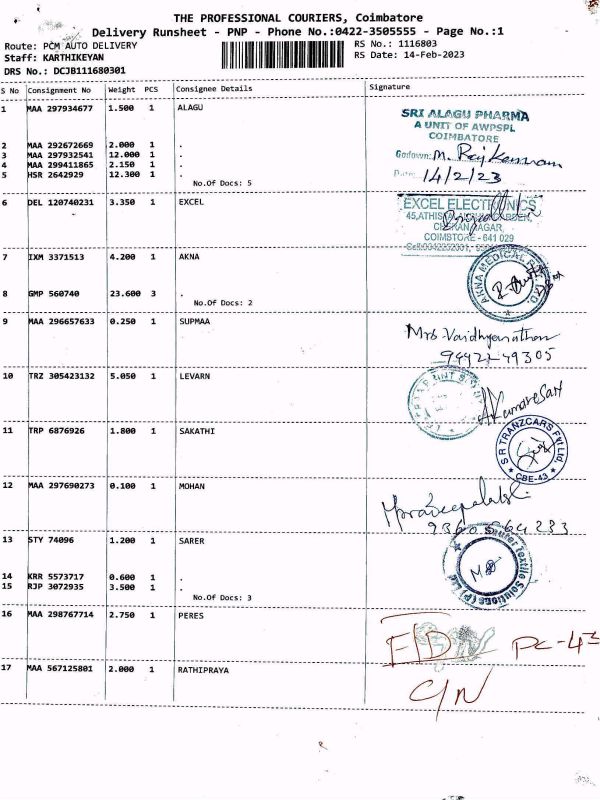 THE PROFESSIONAL COURIERS, Coimbatore
Delivery Runsheet - PNP - Phone No.:0422-3505555 - Page No.:1
Route: PCM AUTO DELIVERY
RS No.: 1116803
Staff: KARTHIKEYAN
RS Date: 14-Feb-2023
DRS No.: DCJB111680301
S No Consignment No Weight PCS Consignee Details Signature
1 MAA 297934677 1.500 1 ALAGU
SRI ALAGU PHARMA
A UNIT OF AWPSPL
COIMBATORE
2 MAA 292672669 2.000 1 .
3 MAA 297932541 12.000 1 .
Godown: M. Rajkannan
4 MAA 299411865 2.150 1 .
5 HSR 2642929 12.300 1 .
Date: 14/2/23
No.Of Docs: 5
6 DEL 120740231 3.350 1 EXCEL
EXCEL ELECTRONICS
NAGAR,
COIMBTORE - 641 029
7 IXM 3371513 4.200 1 AKNA
AKNA MEDICAL
8 GMP 560740 23.600 3 .
No.Of Docs: 2
9 MAA 296657633 0.250 1 SUPMAA
Mrs. Vaidhyanathan
10 TRZ 305423132 5.050 1 LEVARN
11 TRP 6876926 1.800 1 SAKATHI
S R TRANZCARS Pvt Ltd.
CBE-43
12 MAA 297690273 0.100 1 MOHAN
13 STY 74096 1.200 1 SARER
Textile Solutions (P) Ltd
14 KRR 5573717 0.600 1 .
15 RJP 3072935 3.500 1 .
No.Of Docs: 3
16 MAA 298767714 2.750 1 PERES
17 MAA 567125801 2.000 1 RATHIPRAYA
C/N